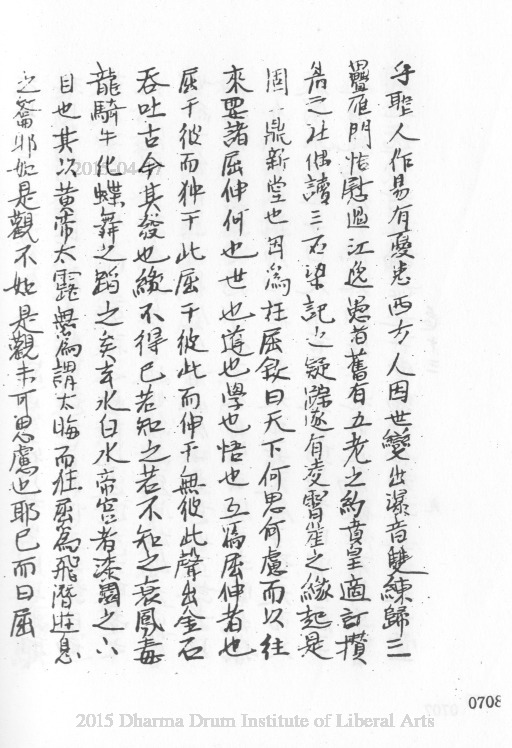 乎聖人作易有憂患西方人因世變出瀑音雙練歸三
疊雁門恬慰過江逸愚者舊有五老之約賁皇適訂攢
眉之社偶讀三石梁記之疑蹤遂有凌霄崖之緣起是
固一鼎新堂也因爲拄屈歎曰天下何思何慮而以往
來要諸屈伸何也世也道也學也悟也互爲屈伸者也
屈于彼而独于此屈于彼此而伸于無彼此聲出金石
吞吐古今其發也緣不得已若知之若不知之衰鳳毒
龍騎牛化蝶舞之蹈之矣玄水白水帝宮者漆園之六
目也其以黄帝太露無爲謂太晦而狂屈爲飛潛莊息
之籥耶如是觀不如是觀未可思慮也耶已而曰屈
0708
2015-04-
2015 Dharma Drum Institute of Liberal Arts